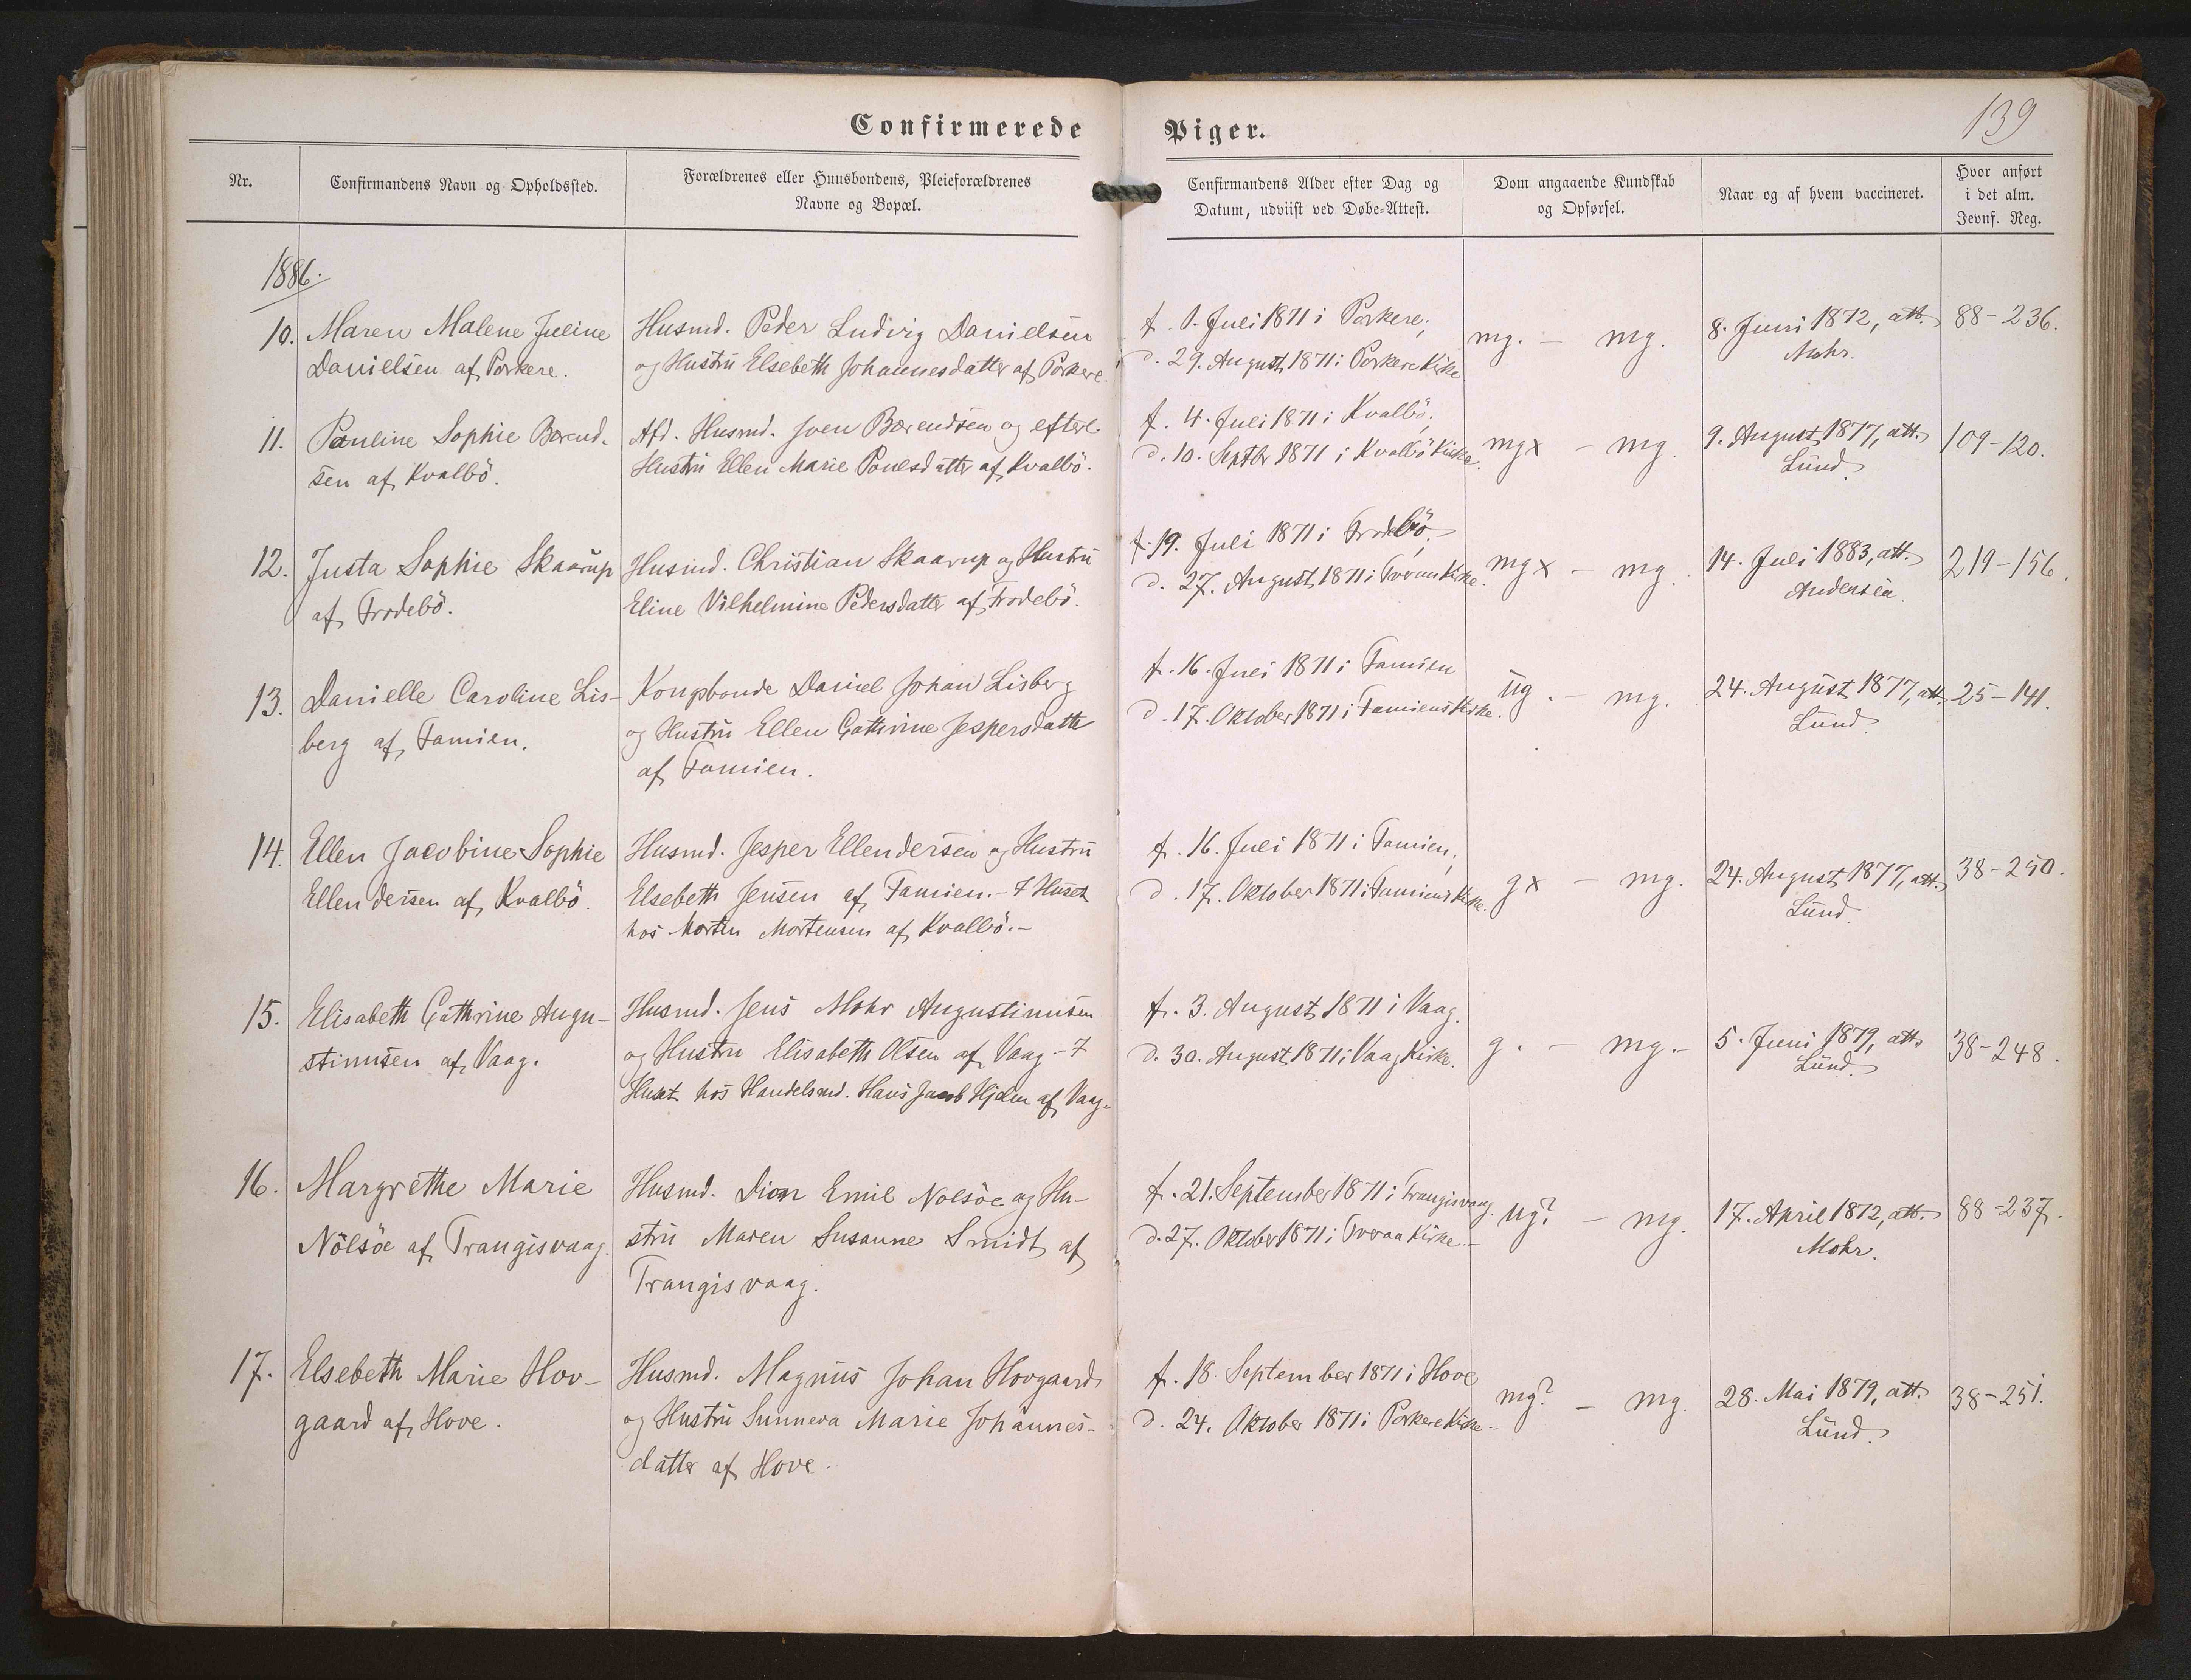 Confirmerede Piger.
139
Nr.
Confirmandens Navn og Opholdssted.
Forældrenes eller Huusbondens, Pleieforældrenes
Navne og Bopæl.
Confirmandens Alder efter Dag og
Datum, udviist ved Døbe-Attest.
Dom angaaende Kundskab
og Opførsel.
Naar og af hvem vaccineret.
Hvor anført
i det alm.
Jevnf. Reg.
1886.
10.
Maren Malene Juline
Danielsen af Porkere.
Husmd. Peder Ludvig Danielsen
og Hustrü Elsebeth Johannesdatter af Porkere.
f. 1. Juli 1871 i Porkere;
d. 29. August 1871 i Porkere Kirke
mg. - mg.
8. Juni 1872, att.
Mohr.
88-236.
11.
Pauline Sophie Barend-
sen af Kvalbö.
Afd. Husmd. Joen Barendsen og efterl.
Hustrü Ellen Marie Poulsdatter af Kvalbö.
f. 4. Juli 1871 i Kvalbö;
d. 10. Septbr 1871 i Kvalbö Kirke.
mgx - mg.
9. August 1877, att.
Lünd.
109-120.
12.
Justa Sophie Skaarup
af Frodebö.
Husmd. Christian Skaarup og Hustrü
Eline Vilhelmine Pedersdatter af Frodebö.
f. 19. Juli 1871 i Frodebö,
d. 27. August 1871 i Tveraa Kirke.
mgx - mg.
14. Juli 1883, att.
Andersen.
219-156.
13.
Danielle Caroline Lis-
berg af Famien.
Kongsbonde Daniel Johan Lisberg
og Hustrü Ellen Cathrine Jespersdatter
af Famien.
f. 16. Juli 1871 i Famien
d. 17. Oktober 1871 i Famiens Kirke.
üg. - mg.
24. August 1877, att.
Lünd.
25-141.
14.
Ellen Jacobine Sophie
Ellendersen af Kvalbö.
Husmd. Jesper Ellendersen og Hustrü
Elsebeth Jensen af Famien. - I Huset
hos Morten Mortensen af Kvalbö. -
f. 16. Juli 1871 i Famien;
d. 17. Oktober 1871 i Famiens Kirke.
gx - mg.
24. August 1877, att.
Lünd.
38-250.
15.
Elisabeth Cathrine Augu-
stinusen af Vaag.
Husmd. Jens Mohr Augustinusen
og Hustru Elisabeth Olsen af Vaag. - I
Huset hos Handelsmd. Hans Jacob Hjelm af Vaag.
f. 3. August 1871 i Vaag.
d. 30. August 1871 i Vaag Kirke.
g. - mg. -
5. Juni 1879, att.
Lünd.
38-248.
16.
Margrethe Marie
Nölsöe af Trangisvaag.
Husmd. Dion Emil Nolsöe og Hu-
strü Maren Susanne Smidt af
Trangisvaag.
f. 21. September 1871 i Trangisvaag.
d. 27. Oktober 1871 i Tveraa Kirke. -
ug? - mg.
17. April 1872, att.
Mohr.
88-237.
17.
Elsebeth Marie Hov-
gaard af Hove.
Husmd. Magnüs Johan Hovgaard
og Hustrü Sunneva Marie Johannes-
datter af Hove.
f. 18. September 1871 i Hove
d. 24. Oktober 1871 i Porkere Kirke. -
mg? - mg.
28. Mai 1879, att.
Lünd.
38-251.